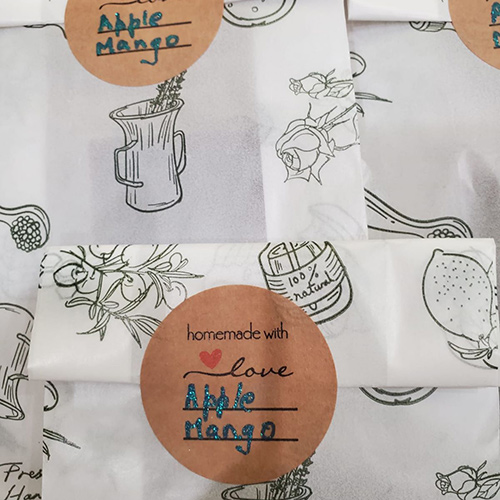 Apple
Mango
100%
natural
homemade with
love
Apple
Mango